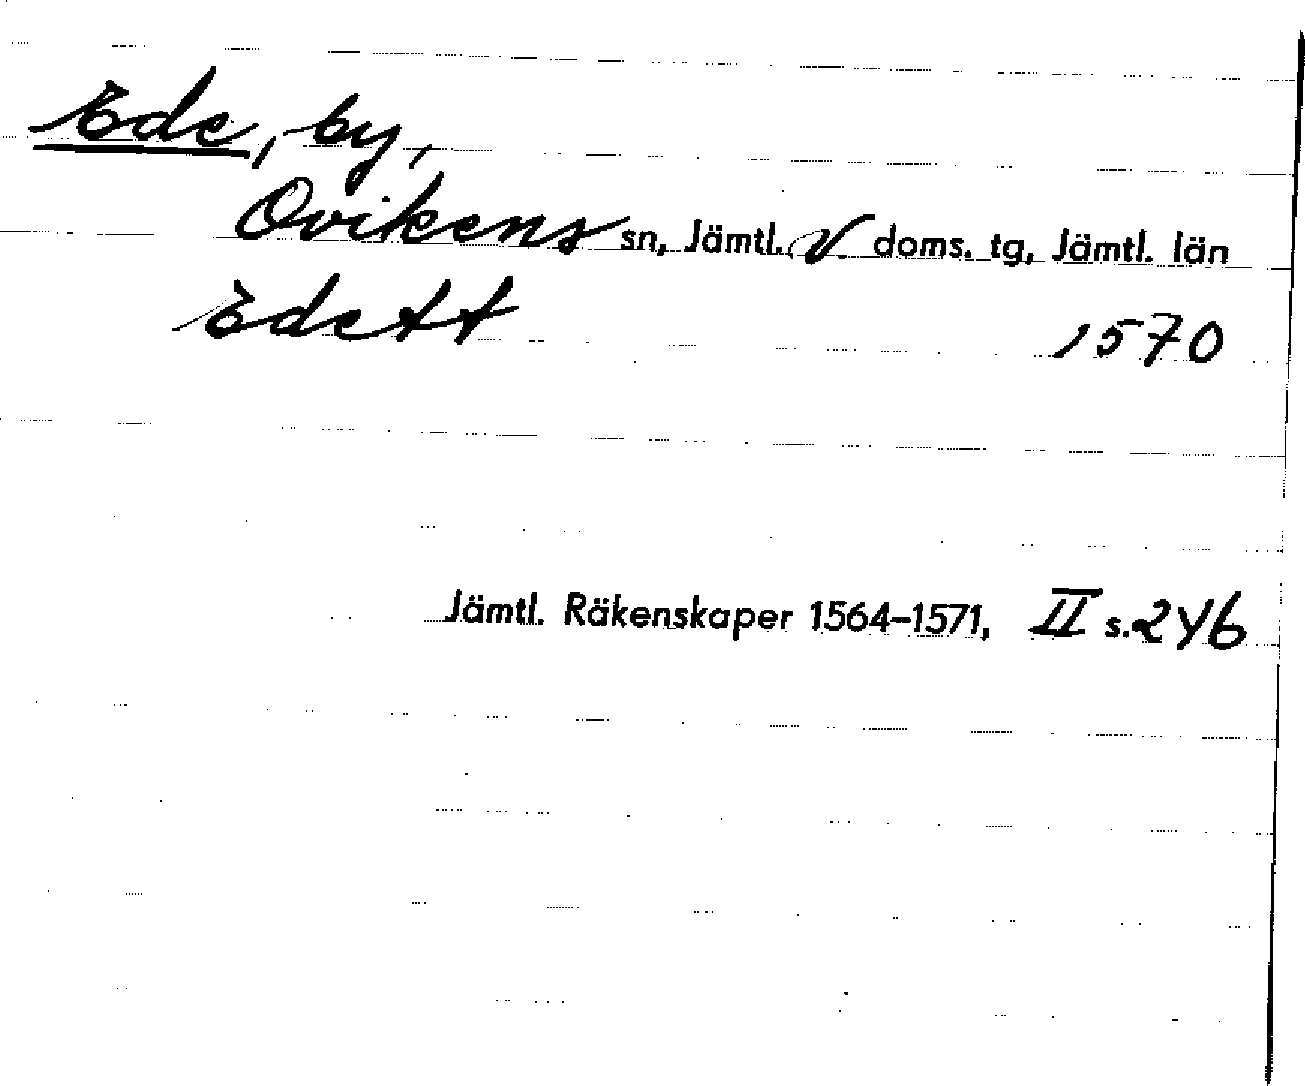 Ede, by,
Ovikens sn, Jämtl. V. doms. tg, Jämtl. län
Edett 1570
Jämtl. Räkenskaper 1564–1571, II s. 246